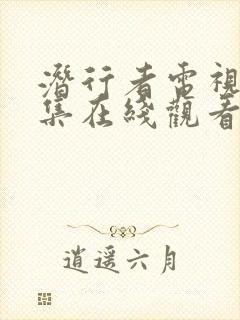 潛行者電視
集在綫觀看
逍遥六月